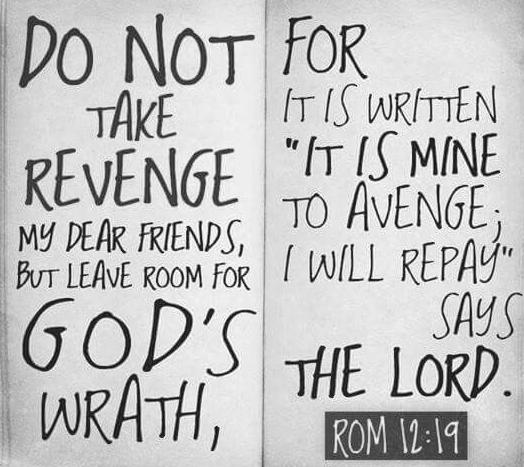 DO NOT
TAKE
REVENGE
MY DEAR FRIENDS,
BUT LEAVE ROOM FOR
GOD'S
WRATH,
FOR
IT IS WRITTEN
"IT IS MINE
TO AVENGE;
I WILL REPAY"
SAYS
THE LORD.
ROM 12:19